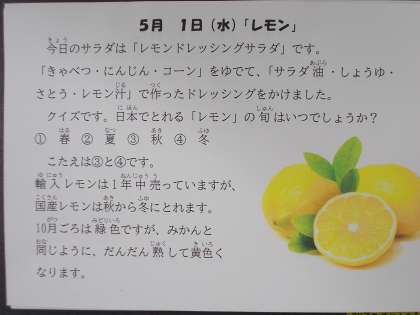 5月 1日(水)「レモン」
今日のサラダは「レモンドレッシングサラダ」です。
「きゃべつ・にんじん・コーン」をゆでて、「サラダ油・しょうゆ・
さとう・レモン汁」で作ったドレッシングをかけました。
クイズです。日本でとれる「レモン」の旬はいつでしょうか?
① 春 ② 夏 ③ 秋 ④ 冬
こたえは③と④です。
輸入レモンは1年中売っていますが、
国産レモンは秋から冬にとれます。
10月ごろは緑色ですが、みかんと
同じように、だんだん熟して黄色く
なります。